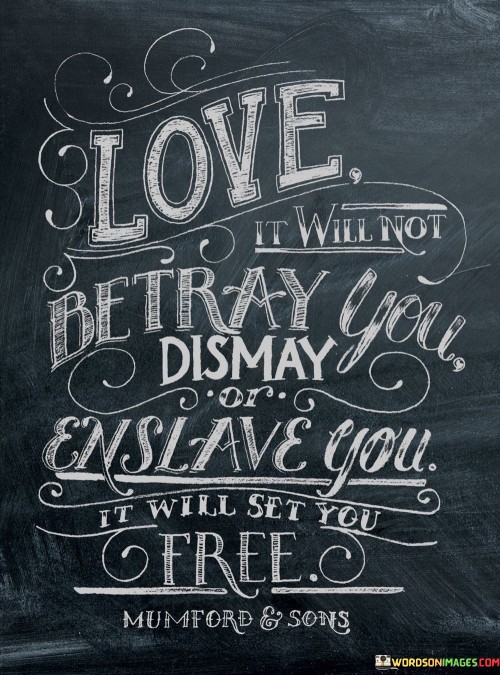 LOVE,
IT WILL NOT
BETRAY YOU,
DISMAY
or
ENSLAVE YOU.
IT WILL SET YOU
FREE.
MUMFORD & SONS
WORDSONIMAGES.COM